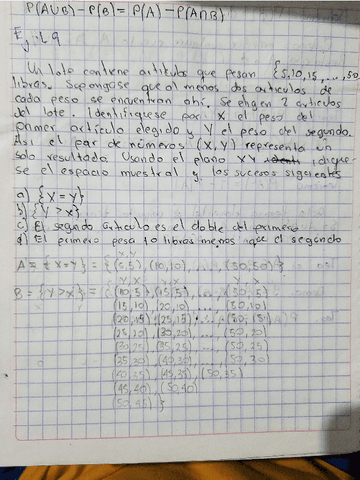 P(A∪B) - P(B) = P(A) - P(A∩B)
Ej. 1.9
Un lote contiene artículos que pesan {5,10,15,...,50
libras. Supongase que al menos dos artículos de
cada peso se encuentran ahí. Se eligen 2 artículos
del lote. Identifíquese por X el peso del
primer artículo elegido y Y el peso del segundo.
Así el par de números (X,Y) representa un
solo resultado. Usando el plano XY indíque-
se el espacio muestral y los sucesos siguientes
a) {X=Y}
b) {Y>x}
c) El segundo artículo es el doble del primero
d) El primero pesa 10 libras menos que el segundo
A = {X=Y} = {(5,5),(10,10),...,(50,50)}
B = {Y>x} = {(10,5),(15,5),...,(50,5)
(15,10)(20,10)...,(50,10)
(20,15),(25,15),...,(50,15)
(25,20),(30,20)...,(50,20)
(30,25),(35,25)...,(50,25)
(35,30),(40,30)...,(50,30)
(40,35),(45,35),(50,35)
(45,40),(50,40)
(50,45)}